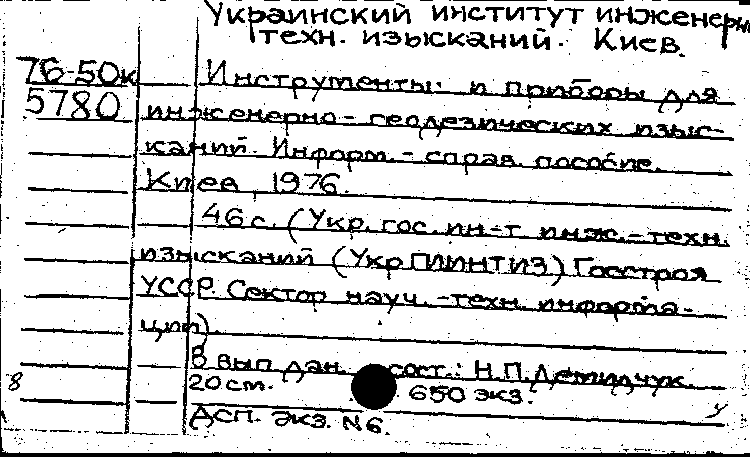 Украинский институт инженерн
техн. изысканий. Киев.
76-50к Инструменты и приборы для
5780 инженерно-геодезических изыс-
каний. Информ.-справ. пособие.
Киев, 1976.
46 с. (Укр. гос. ин-т инж.-техн.
изысканий (УкрГИИНТИЗ) Госстроя
УССР. Сектор науч.-техн. информа-
ции).
В вып. дан. сост.: Н.П. Демидчук.
8 20 cm. 650 экз.
Дсп. Экз. N6.